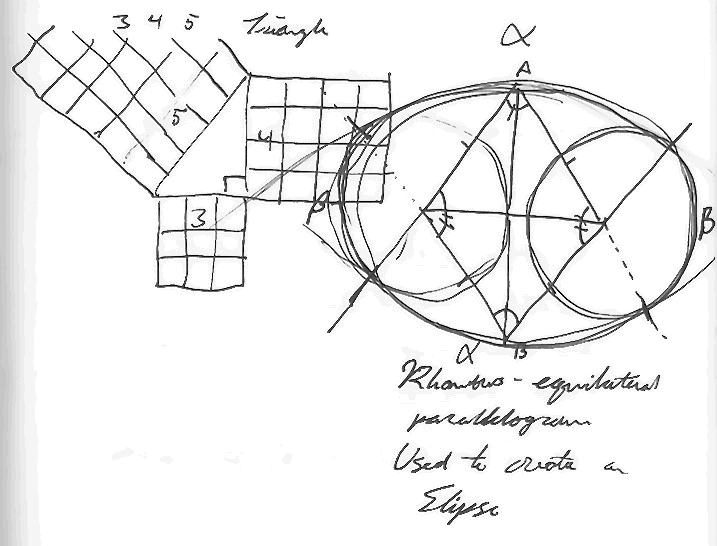 3 4 5 Triangle
5
4
3
α
A
β
B
α B
Rhombus - equilateral
parallelogram
Used to create an
Elipse